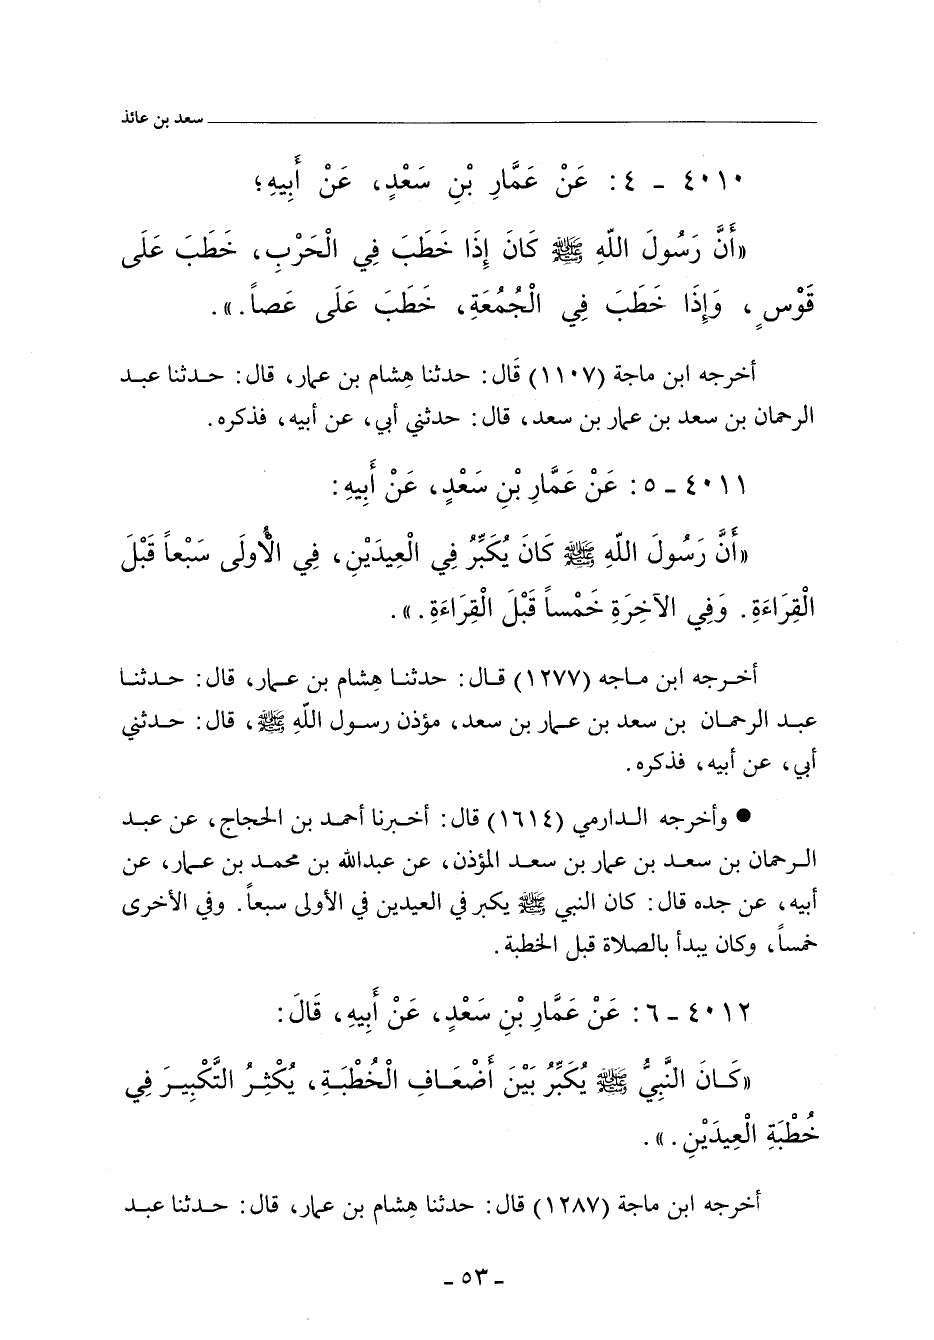 سعد بن عائذ
٤٠١٠ - ٤ : عَنْ عَمَّارِ بْنِ سَعْدٍ، عَنْ أَبِيهِ؛
«أَنَّ رَسُولَ اللّهِ ﷺ كَانَ إِذَا خَطَبَ فِي الْحَرْبِ، خَطَبَ عَلَى
قَوْسٍ، وَإِذَا خَطَبَ فِي الْجُمُعَةِ، خَطَبَ عَلَى عَصاً.».
أخرجه ابن ماجة (١١٠٧) قَال: حدثنا هِشام بن عمار، قال: حدثنا عبد
الرحمان بن سعد بن عمار بن سعد، قال: حدثني أبي، عن أبيه، فذكره.
٤٠١١ - ٥ : عَنْ عَمَّارِ بْنِ سَعْدٍ، عَنْ أَبِيهِ:
«أَنَّ رَسُولَ اللّهِ ﷺ كَانَ يُكَبِّرُ فِي الْعِيدَيْنِ، فِي الْأُولَى سَبْعاً قَبْلَ
الْقِرَاءَةِ. وَفِي الآخِرَةِ خَمْساً قَبْلَ الْقِرَاءَةِ.».
أخرجه ابن ماجه (١٢٧٧) قال: حدثنا هِشام بن عمار، قال: حدثنا
عبد الرحمان بن سعد بن عمار بن سعد، مؤذن رسول اللّهِ ﷺ، قال: حدثني
أبي، عن أبيه، فذكره.
● وأخرجه الدارمي (١٦١٤) قال: أخبرنا أحمد بن الحجاج، عن عبد
الرحمان بن سعد بن عمار بن سعد المؤذن، عن عبدالله بن محمد بن عمار، عن
أبيه، عن جده قال: كان النبي ﷺ يكبر في العيدين في الأولى سبعاً. وفي الأخرى
خمساً، وكان يبدأ بالصلاة قبل الخطبة.
٤٠١٢ - ٦ : عَنْ عَمَّارِ بْنِ سَعْدٍ، عَنْ أَبِيهِ، قَالَ:
«كَانَ النَّبِيُّ ﷺ يُكَبِّرُ بَيْنَ أَضْعَافِ الْخُطْبَةِ، يُكْثِرُ التَّكْبِيرَ فِي
خُطْبَةِ الْعِيدَيْنِ.».
أخرجه ابن ماجة (١٢٨٧) قال: حدثنا هِشام بن عمار، قال: حدثنا عبد
- ٥٣ -